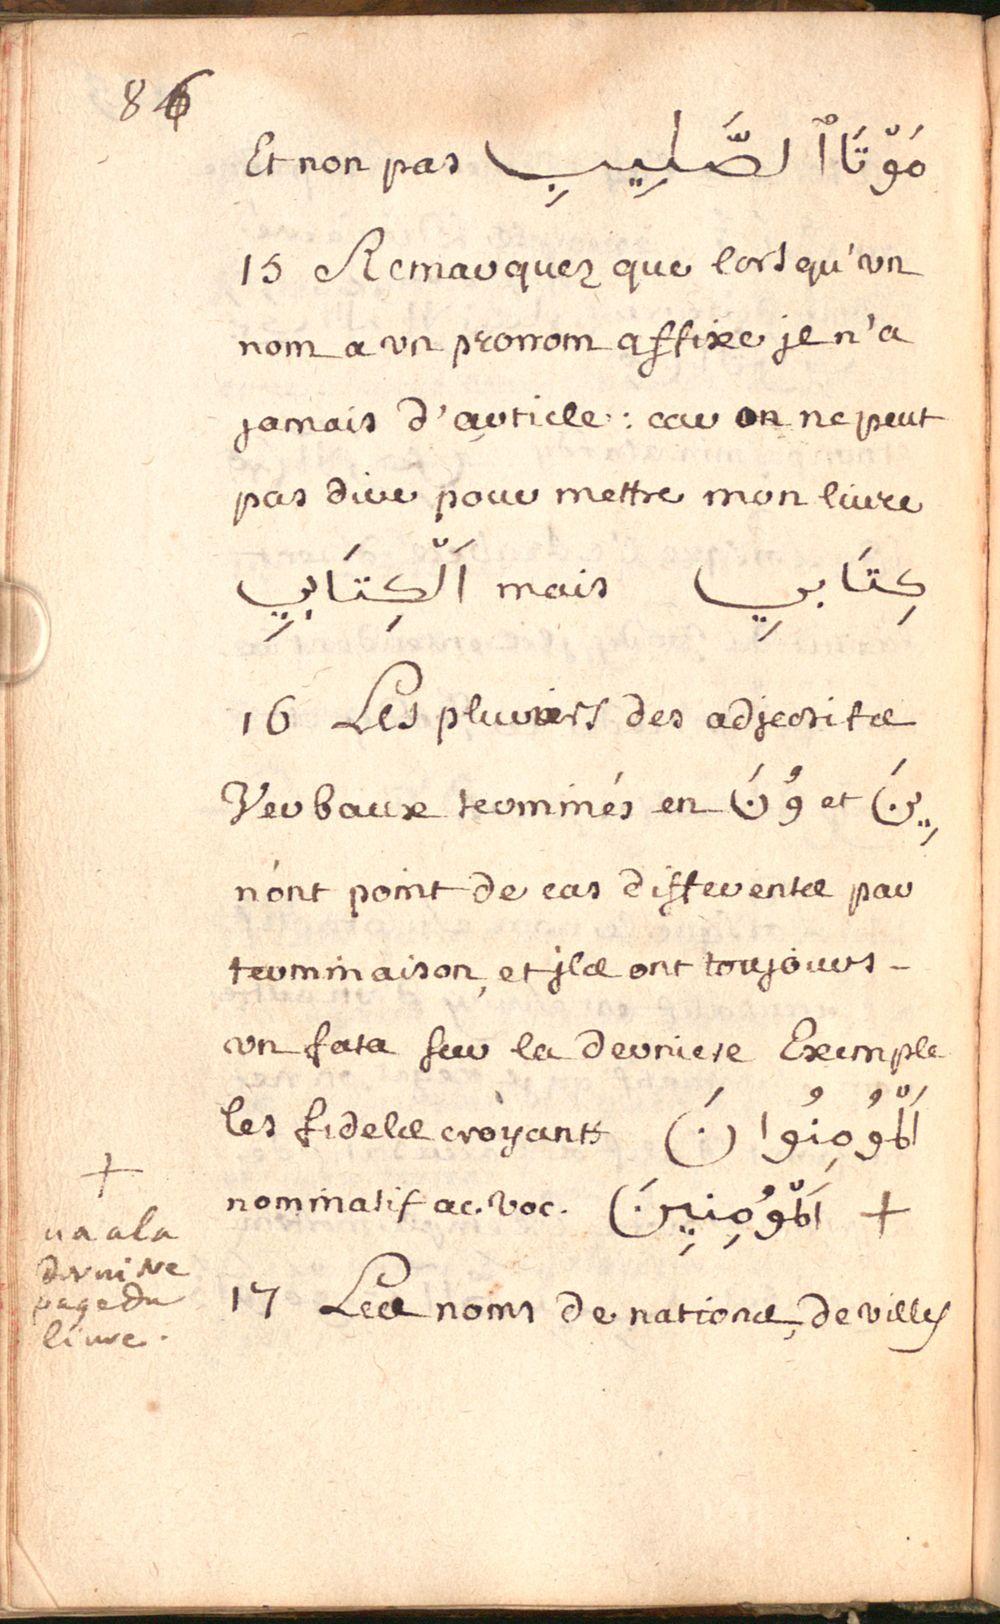 86
Et non pas مَوّتَاٱلصَّلِيبِ
15 Remarquez que lorsqu'un
nom a un pronom affixe jl n'a
jamais d'article : car on ne peut
pas dire pour mettre mon liure
اَلّكِتَابِيِ mais كِتَابيِ
16 Les pluriers des adjectifs
Verbaux terminés en وُنَ et يِنَ
n'ont point de cas differents par
terminaison, et jls ont toujours -
vn fata sur la derniere Exemple
les fideles croyants اَلّمُوُمِنُوانَ
nominatif ac. voc. اَلّمُوُمِنِيِنَ +
17 Les noms de nations, de villes
+
ua a la
derniere
page du
liure.